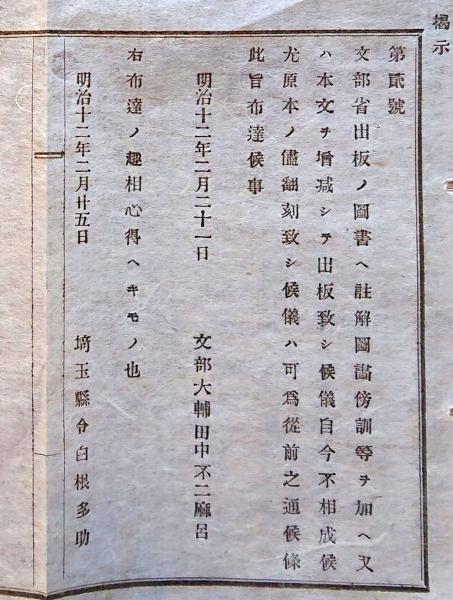 揭示
第貳號
文部省出板ノ圖書ヘ註解圖畵傍訓等ヲ加ヘ又
ハ本文ヲ增減シテ出板致シ候儀自今不相成候
尤原本ノ儘翻刻致シ候儀ハ可爲從前之通候條
此旨布達候事
明治十二年二月二十一日 文部大輔田中不二麻呂
右布達ノ趣相心得ヘキモノ也
明治十二年二月廿五日 埼玉縣令白根多助